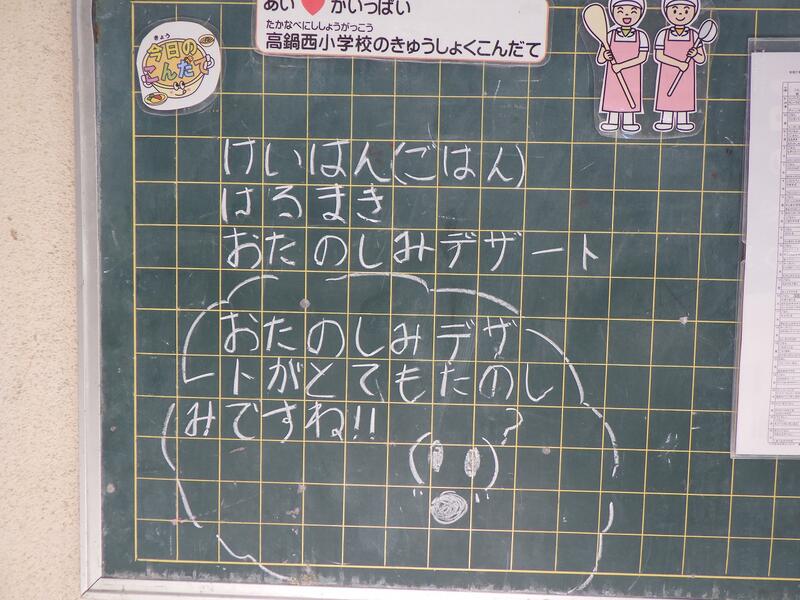 あい♥がいっぱい
たかなべにししょうがっこう
高鍋西小学校のきゅうしょくこんだて
きょう
今日の
こんだて
けいはん(ごはん)
はるまき
おたのしみデザート
おたのしみデザ
ートがとてもたのし
みですね!!
?